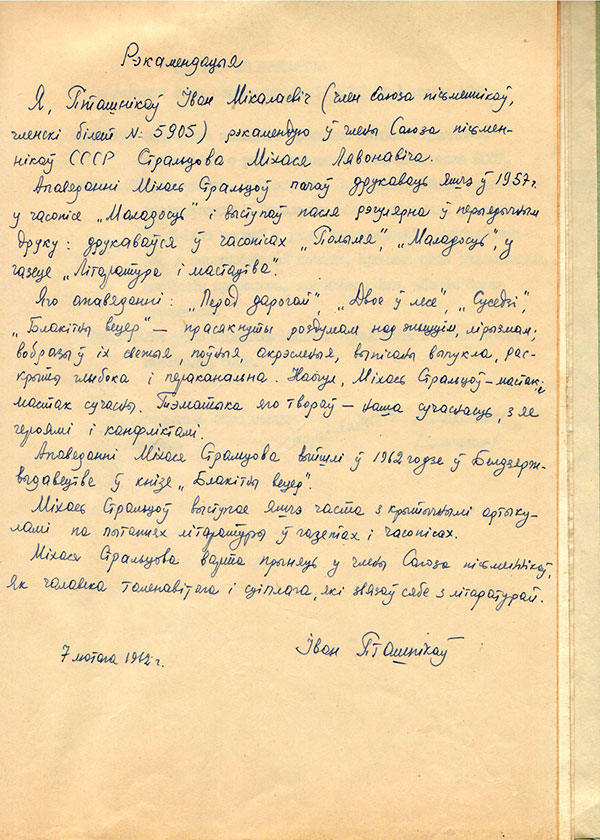 Рэкамендацыя
Я, Пташнікаў Іван Мікалаевіч (член Саюза пісьменнікаў,
членскі білет № 5905) рэкамендую ў члены Саюза пісьмен-
нікаў СССР Стральцова Міхася Лявонавіча.
Апавяданні Міхась Стральцоў пачаў друкаваць яшчэ ў 1957 г.
у часопісе „Маладосць" і выступаў пасля рэгулярна ў перыядычным
друку: друкаваўся ў часопісах „Полымя", „Маладосць", у
газеце „Літаратура і мастацтва".
Яго апавяданні: „Перад дарогай", „Двое ў лесе", „Суседзі",
„Блакітны вецер" — прасякнуты роздумам над жыццём, лірызмам;
вобразы ў іх свежыя, поўныя, акрэсленыя, выпісаны выпукла, рас-
крыты глыбока і пераканальна. Наогул, Міхась Стральцоў — мастак,
мастак сучасны. Тэматыка яго твораў — наша сучаснасць, з яе
героямі і канфліктамі.
Апавяданні Міхася Стральцова выйшлі ў 1962 годзе ў Белдзярж-
выдавецтве ў кнізе „Блакітны вецер".
Міхась Стральцоў выступае яшчэ часта з крытычнымі артыку-
ламі па пытаннях літаратуры ў газетах і часопісах.
Міхася Стральцова варта прыняць у члены Саюза пісьменнікаў,
як чалавека таленавітага і сціплага, які звязаў сябе з літаратурай.
7 лютага 1962 г.
Іван Пташнікаў